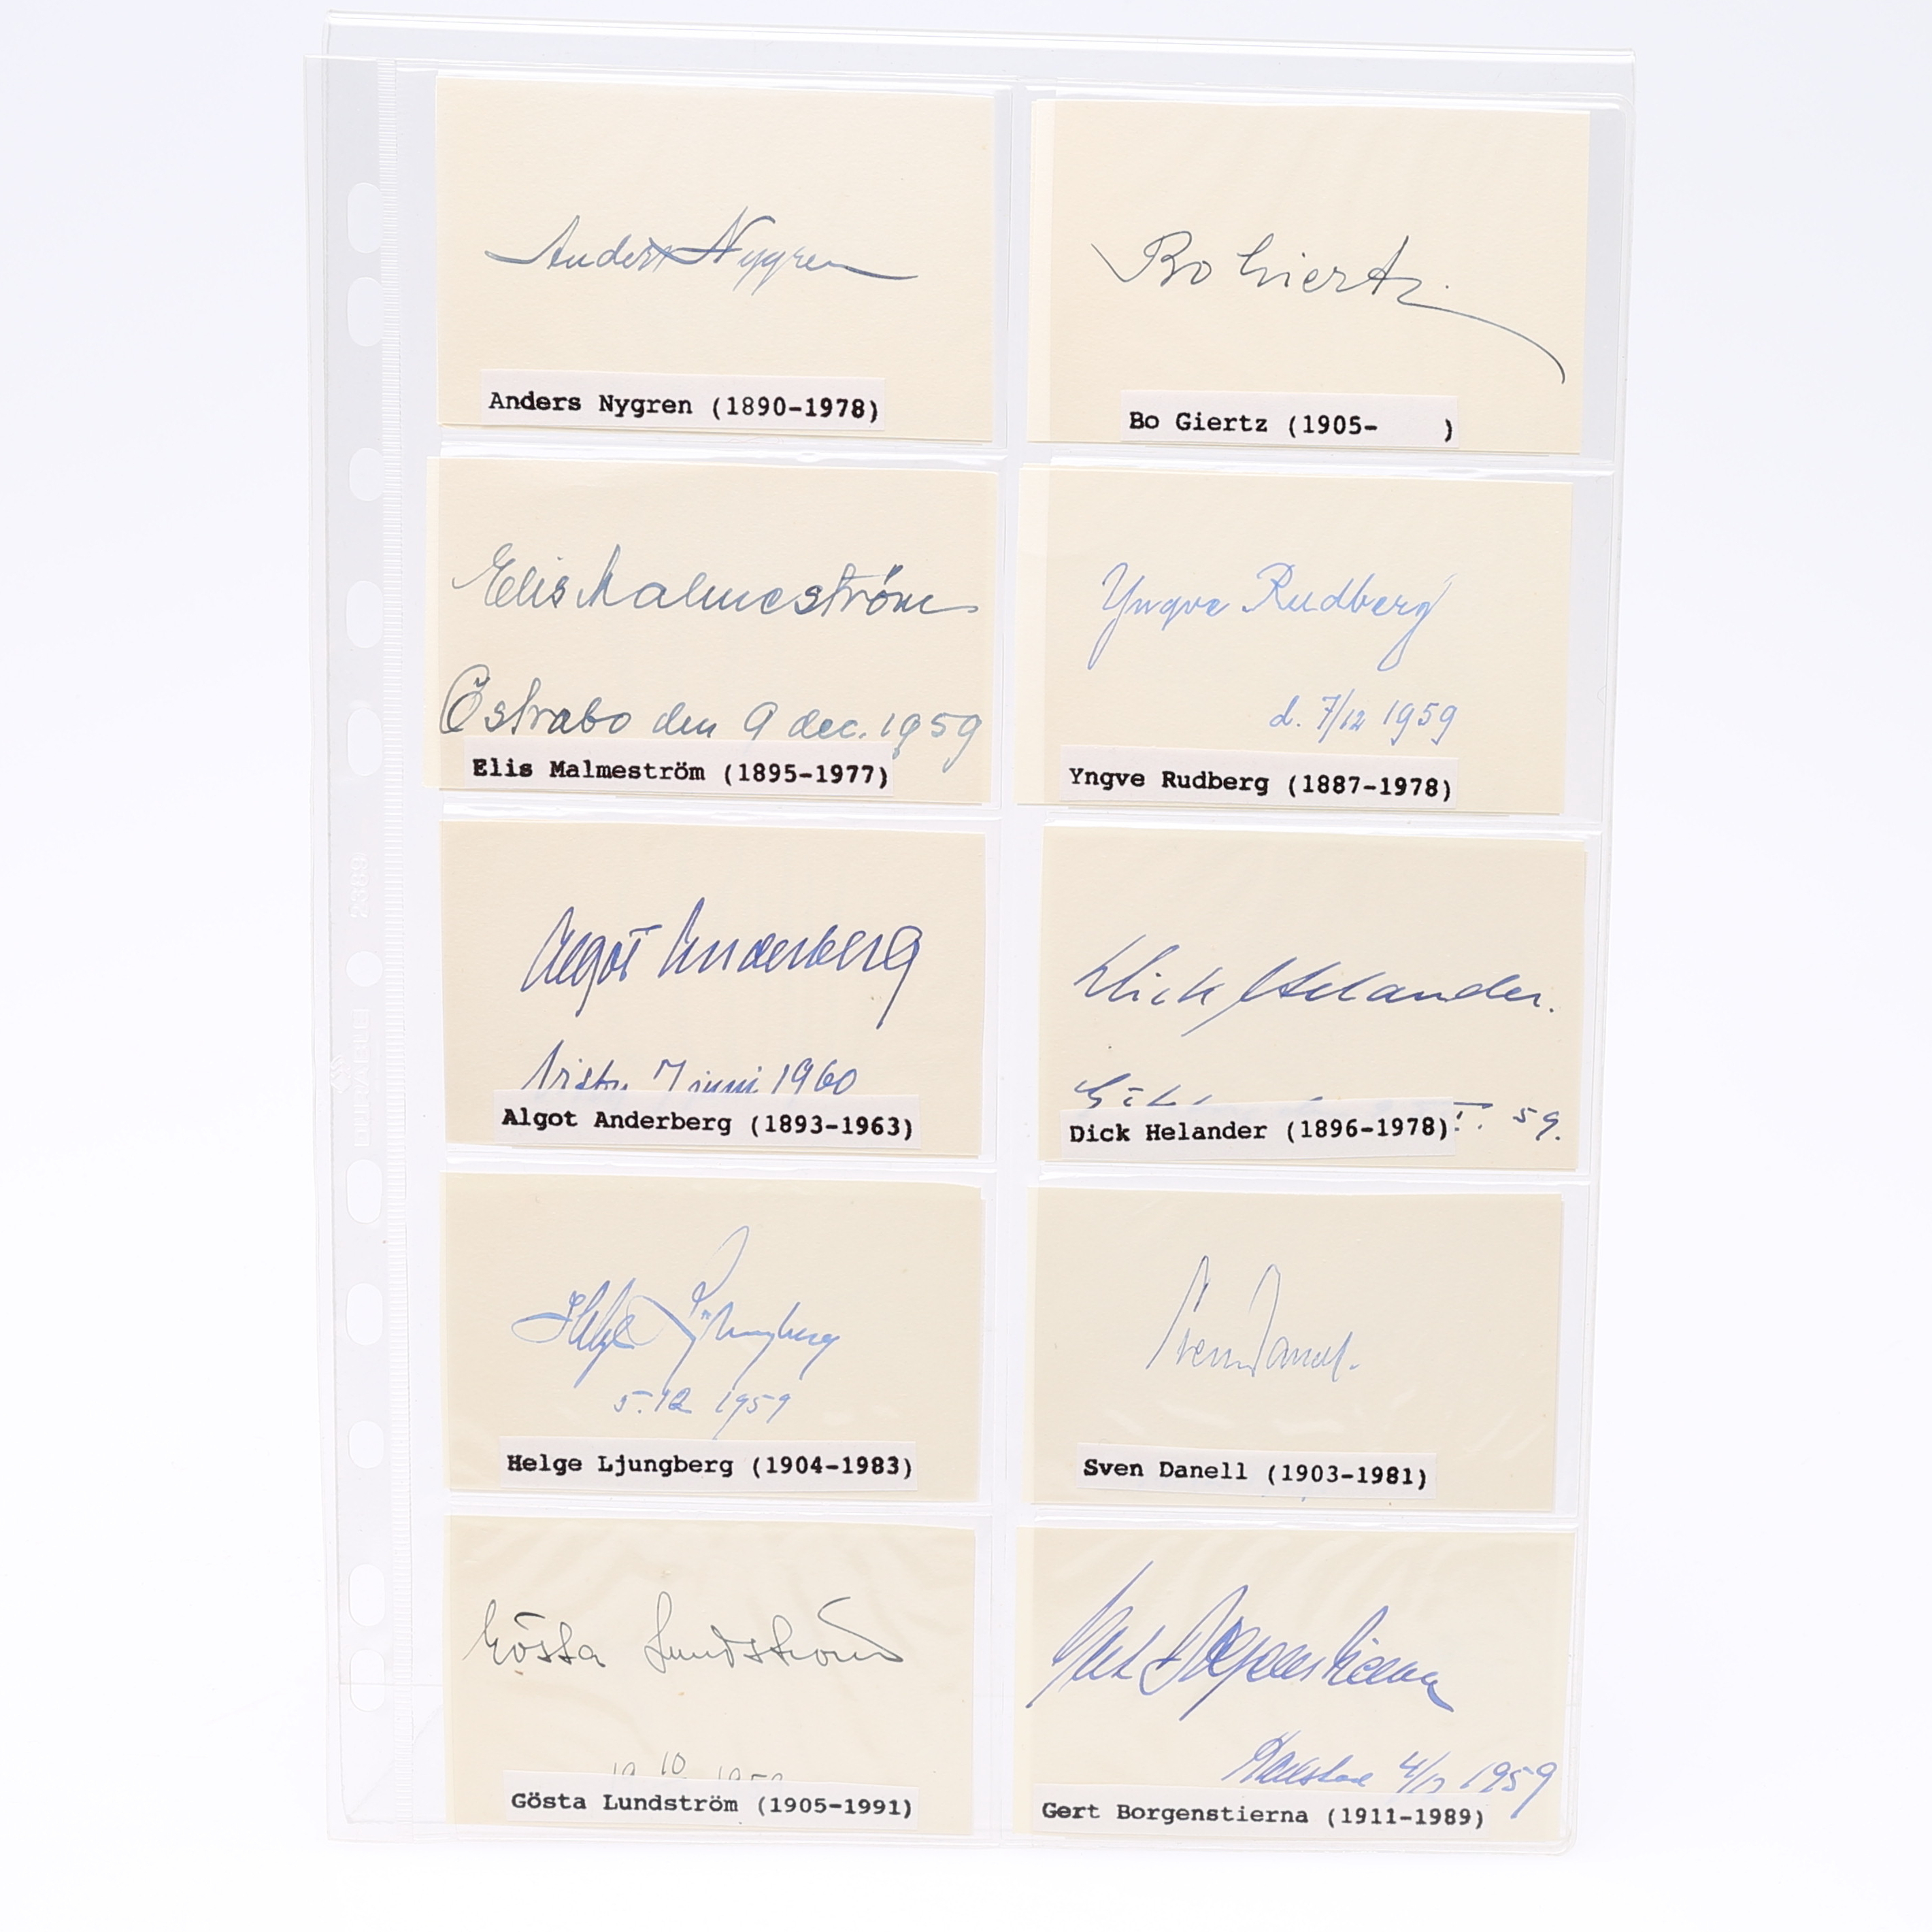 Anders Nygren
Anders Nygren (1890-1978)
Bo Giertz.
Bo Giertz (1905- )
Elis Malmeström
Östrabo den 9 dec. 1959
Elis Malmeström (1895-1977)
Yngve Rudberg
d. 7/12 1959
Yngve Rudberg (1887-1978)
Algot Anderberg
7 juni 1960
Algot Anderberg (1893-1963)
Dick Helander.
59.
Dick Helander (1896-1978)
Helge Ljungberg
5.12 1959
Helge Ljungberg (1904-1983)
Sven Danell.
Sven Danell (1903-1981)
Gösta Lundström
10
Gösta Lundström (1905-1991)
Gert Borgenstierna
1959
Gert Borgenstierna (1911-1989)
DURABLE